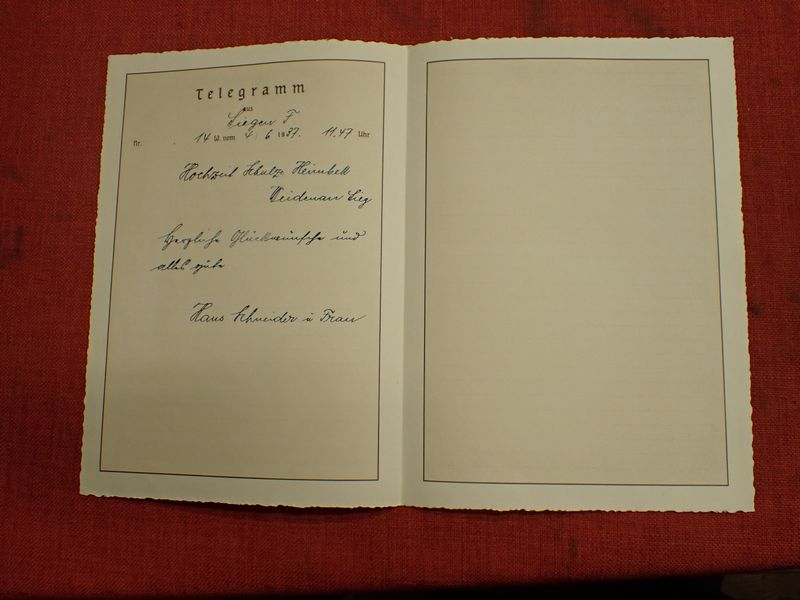 Telegramm
aus
Siegen F
Nr. 14 W. vom 4/6 1937. 11.47 Uhr
Hochzeit Schulze Heimbell
Weidenau Sieg
Herzliche Glückwünsche und
alles gute
Hans Schneider u Frau